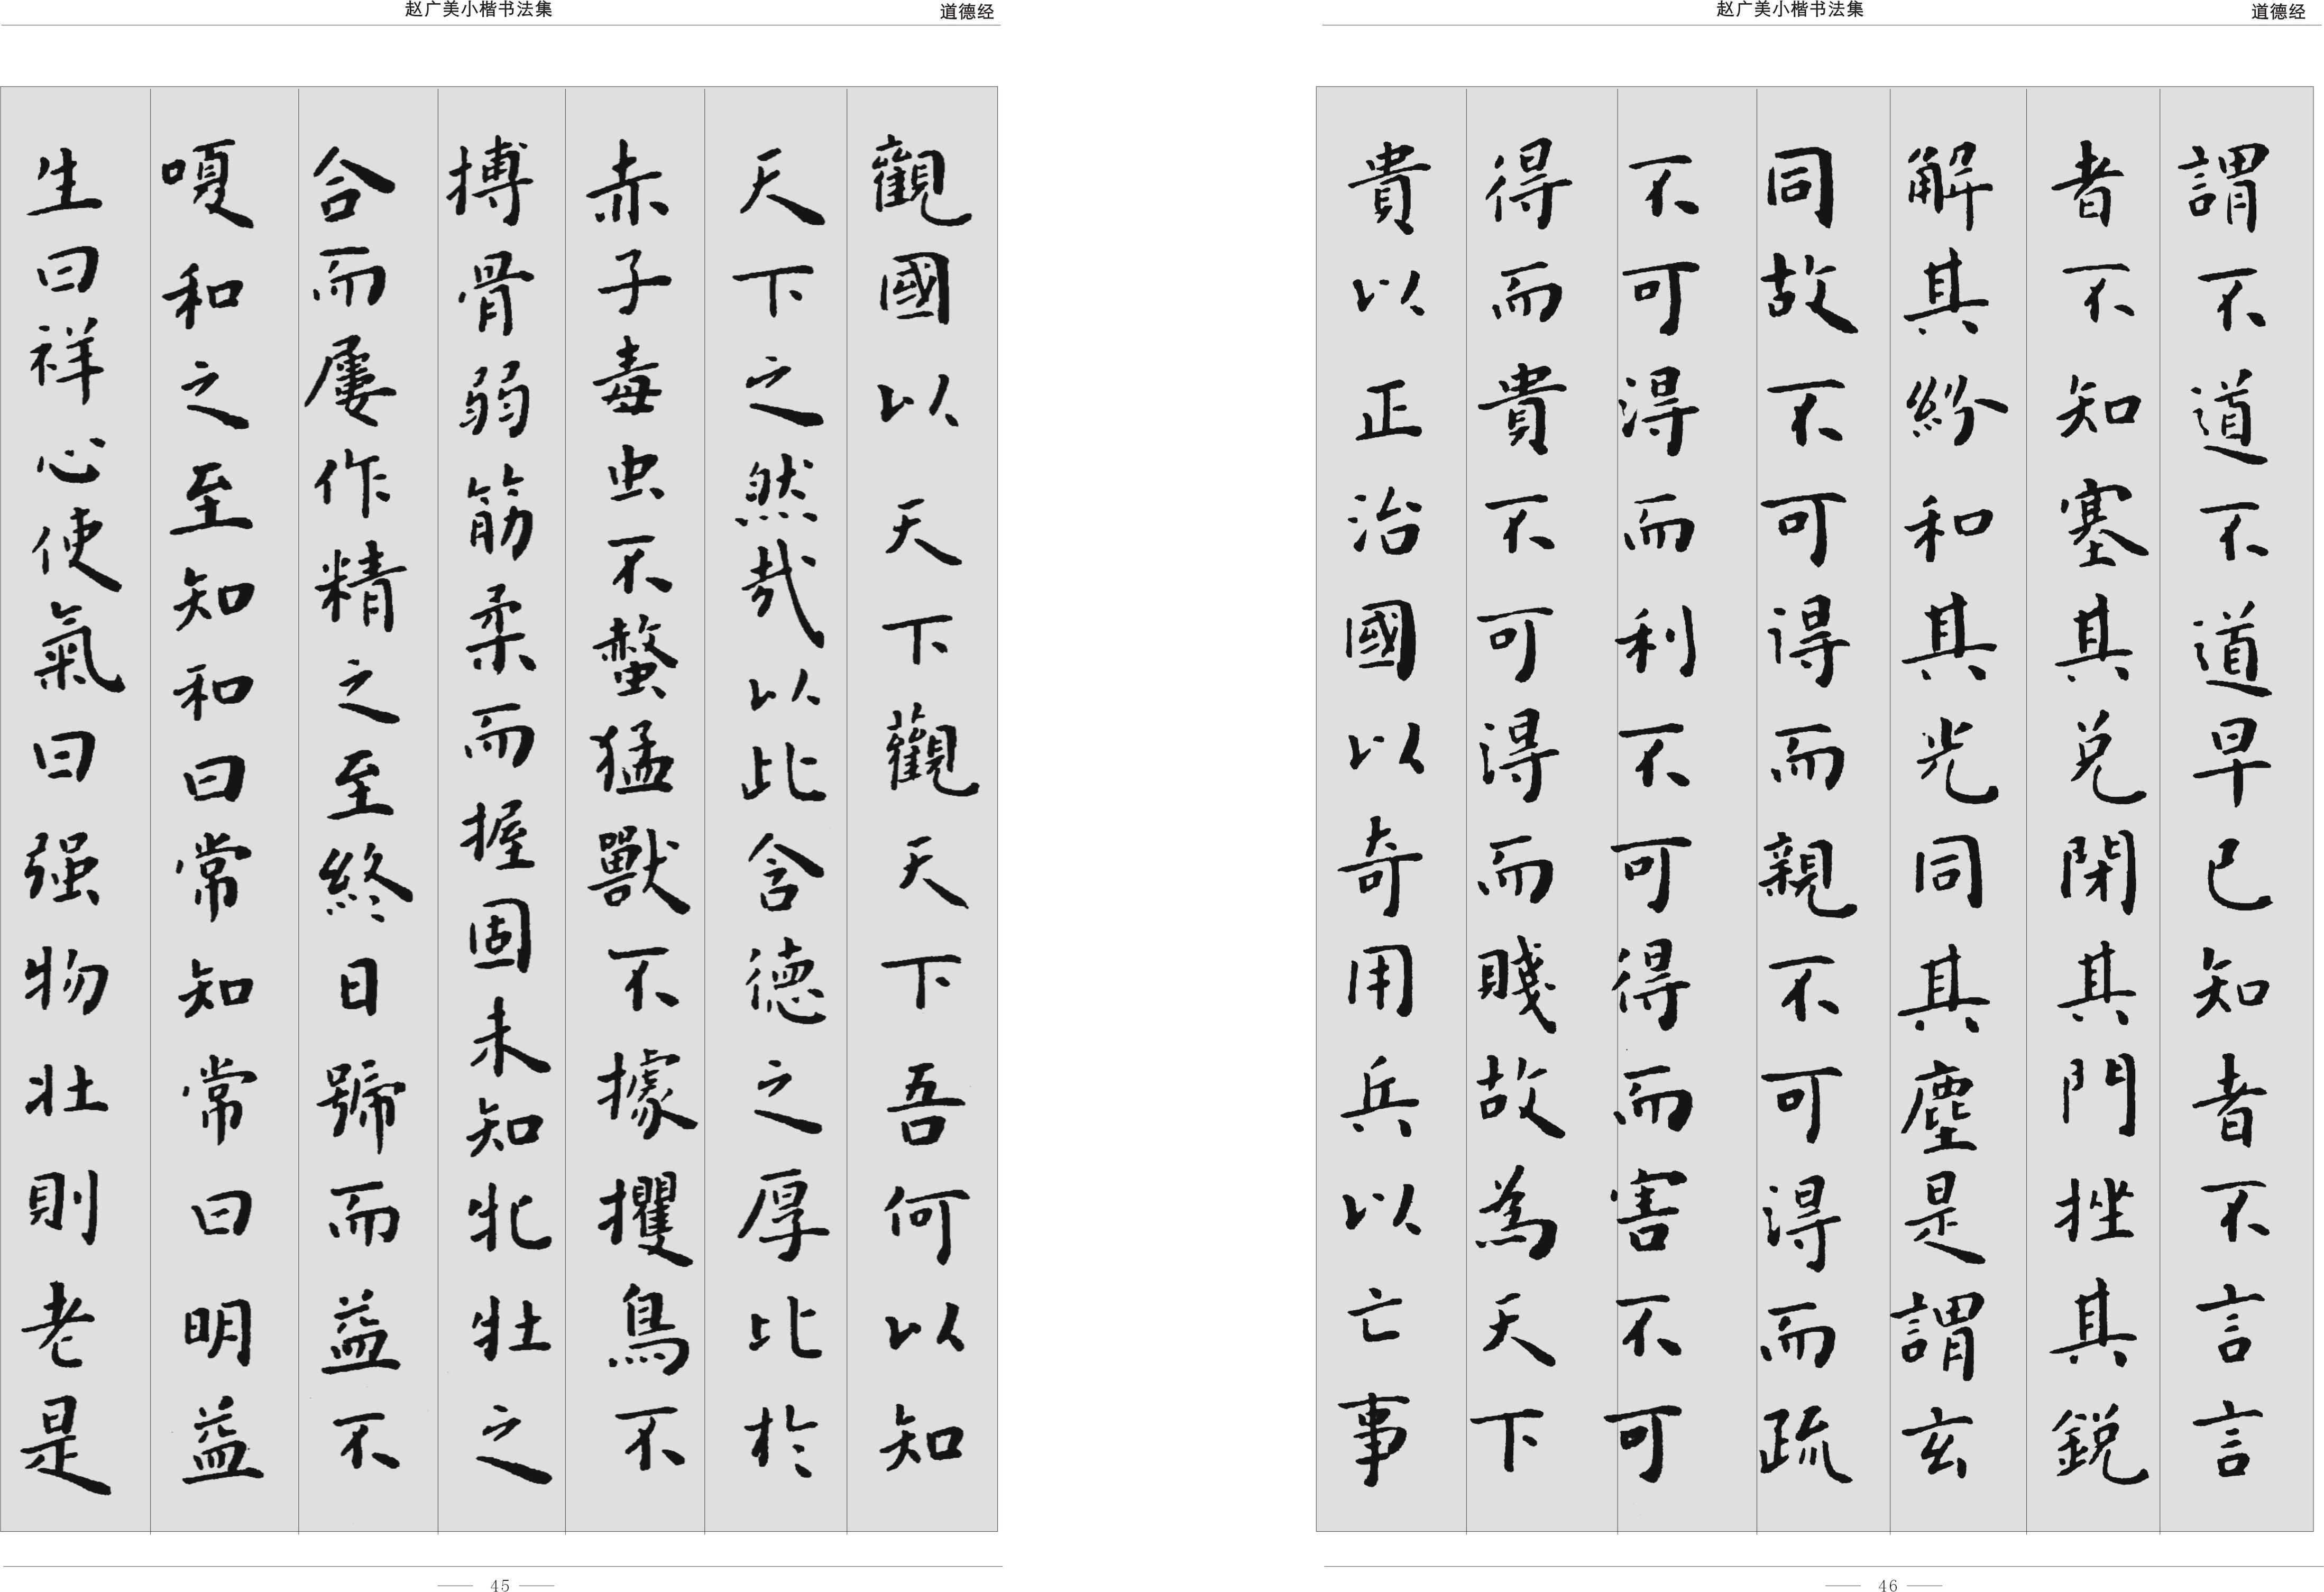 赵广美小楷书法集
道德经
觀國以天下觀天下吾何以知
天下之然哉以此含德之厚比於
赤子毒虫不螫猛獸不據攫鳥不
搏骨弱筋柔而握固未知牝牡之
合而屢作精之至終日號而益不
嗄和之至知和曰常知常曰明益
生曰祥心使氣曰强物壮則老是
45
赵广美小楷书法集
道德经
謂不道不道早已知者不言言
者不知塞其兑閉其門挫其鋭
解其紛和其光同其塵是謂玄
同故不可得而親不可得而疏
不可得而利不可得而害不可
得而貴不可得而賤故為天下
貴以正治國以奇用兵以亡事
46